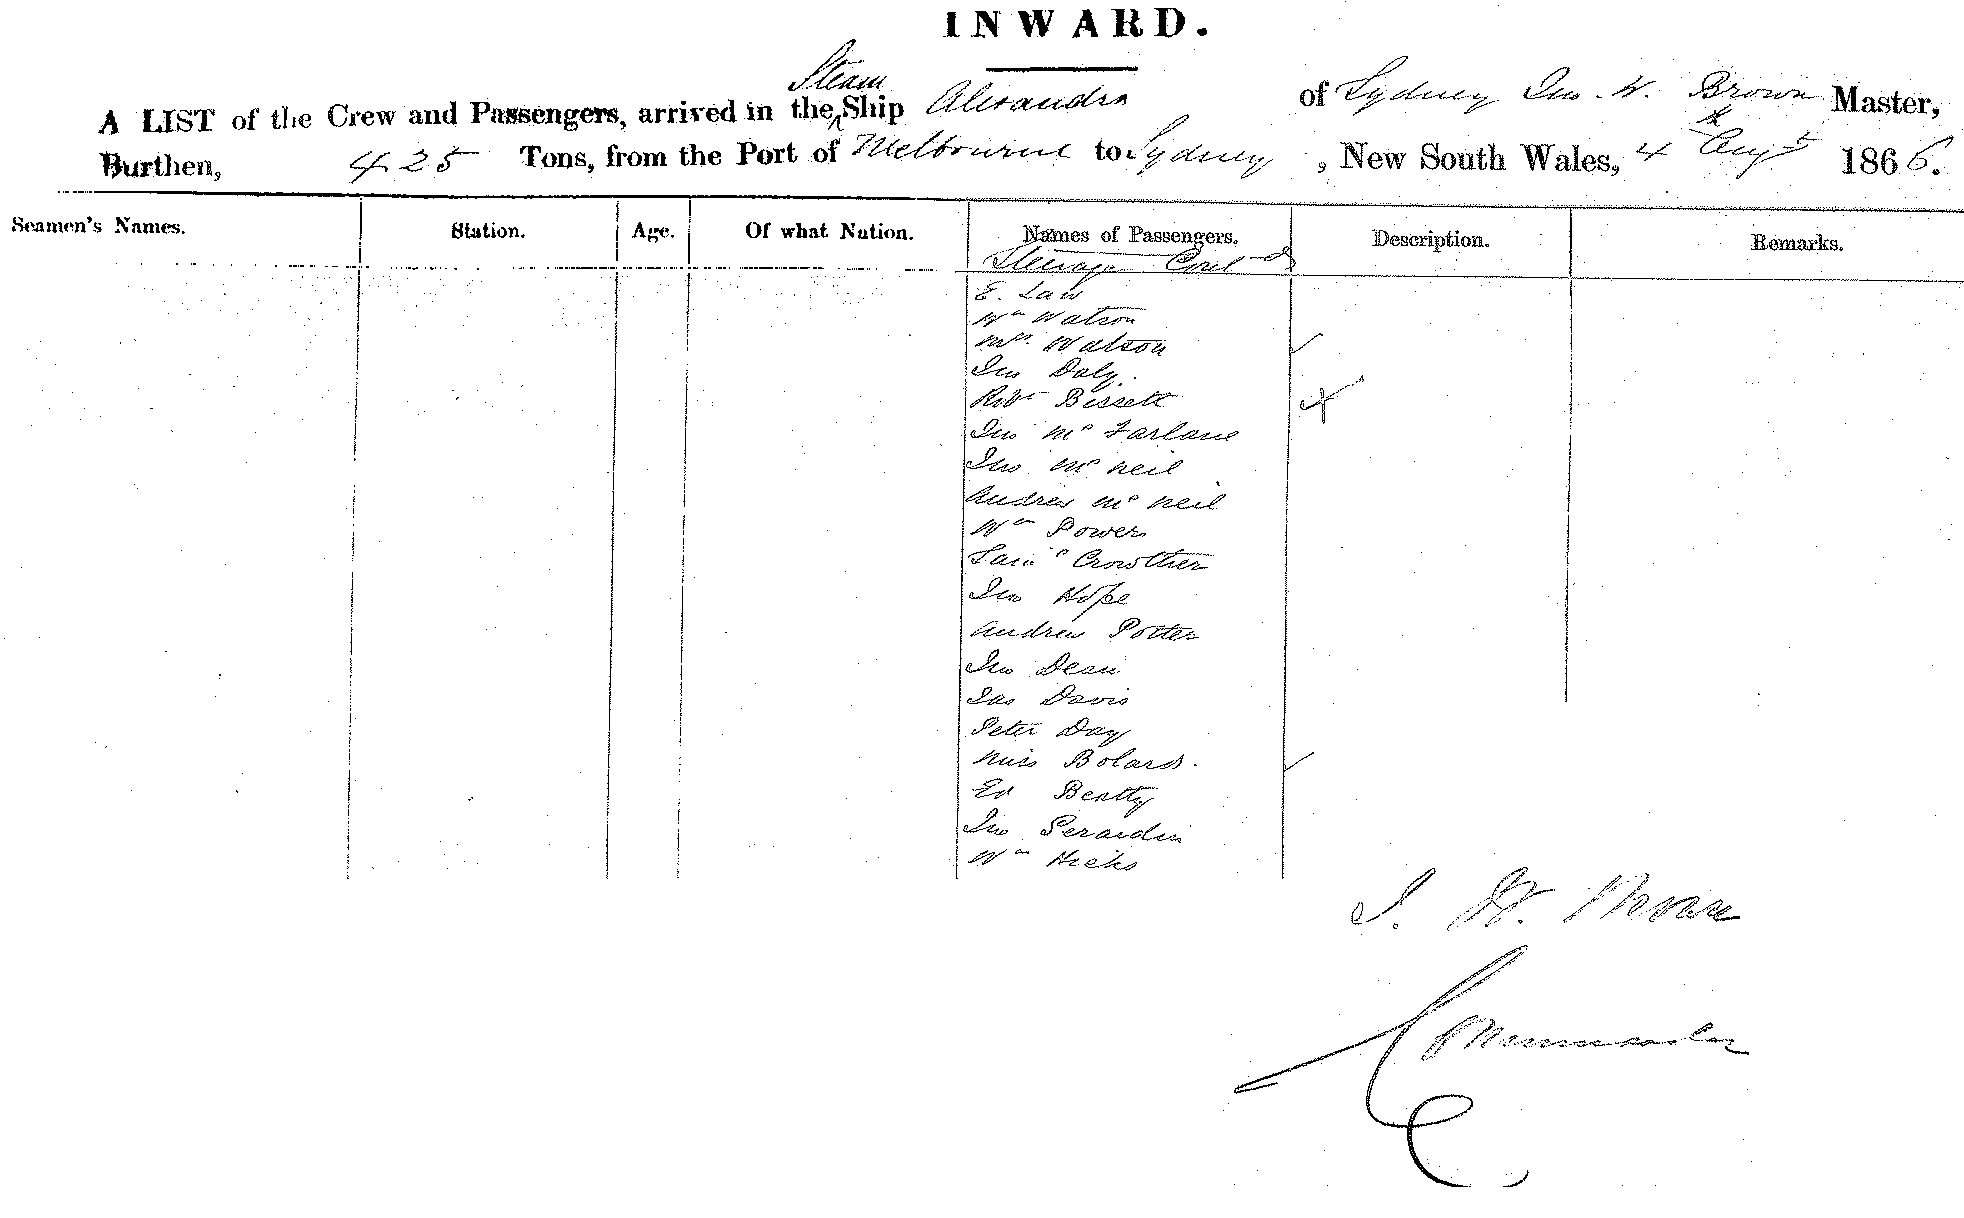 INWARD.
A LIST of the Crew and Passengers, arrived in the Steam Ship Alexandra of Sydney Jno. W. Brown Master,
Burthen, 425 Tons, from the Port of Melbourne to Sydney, New South Wales, 4 Augt 1866.
Seamen's Names. Station. Age. Of what Nation. Names of Passengers. Description. Remarks.
Steerage Cont-d
E. Law
Wm Watson
Mrs. Watson
Jno Daly.
Robt Bissett
Jno Mc Farlane
Jno Mc Neil
Andrew Mc Neil
Wm Power
Saml Crowther
Jno Hope
Andrew Potter
Jno Dean
Jas Davis
Peter Day
Miss Bolard.
Ed Beatty
Jno
Wm Hicks
J. W. Brown
Commander